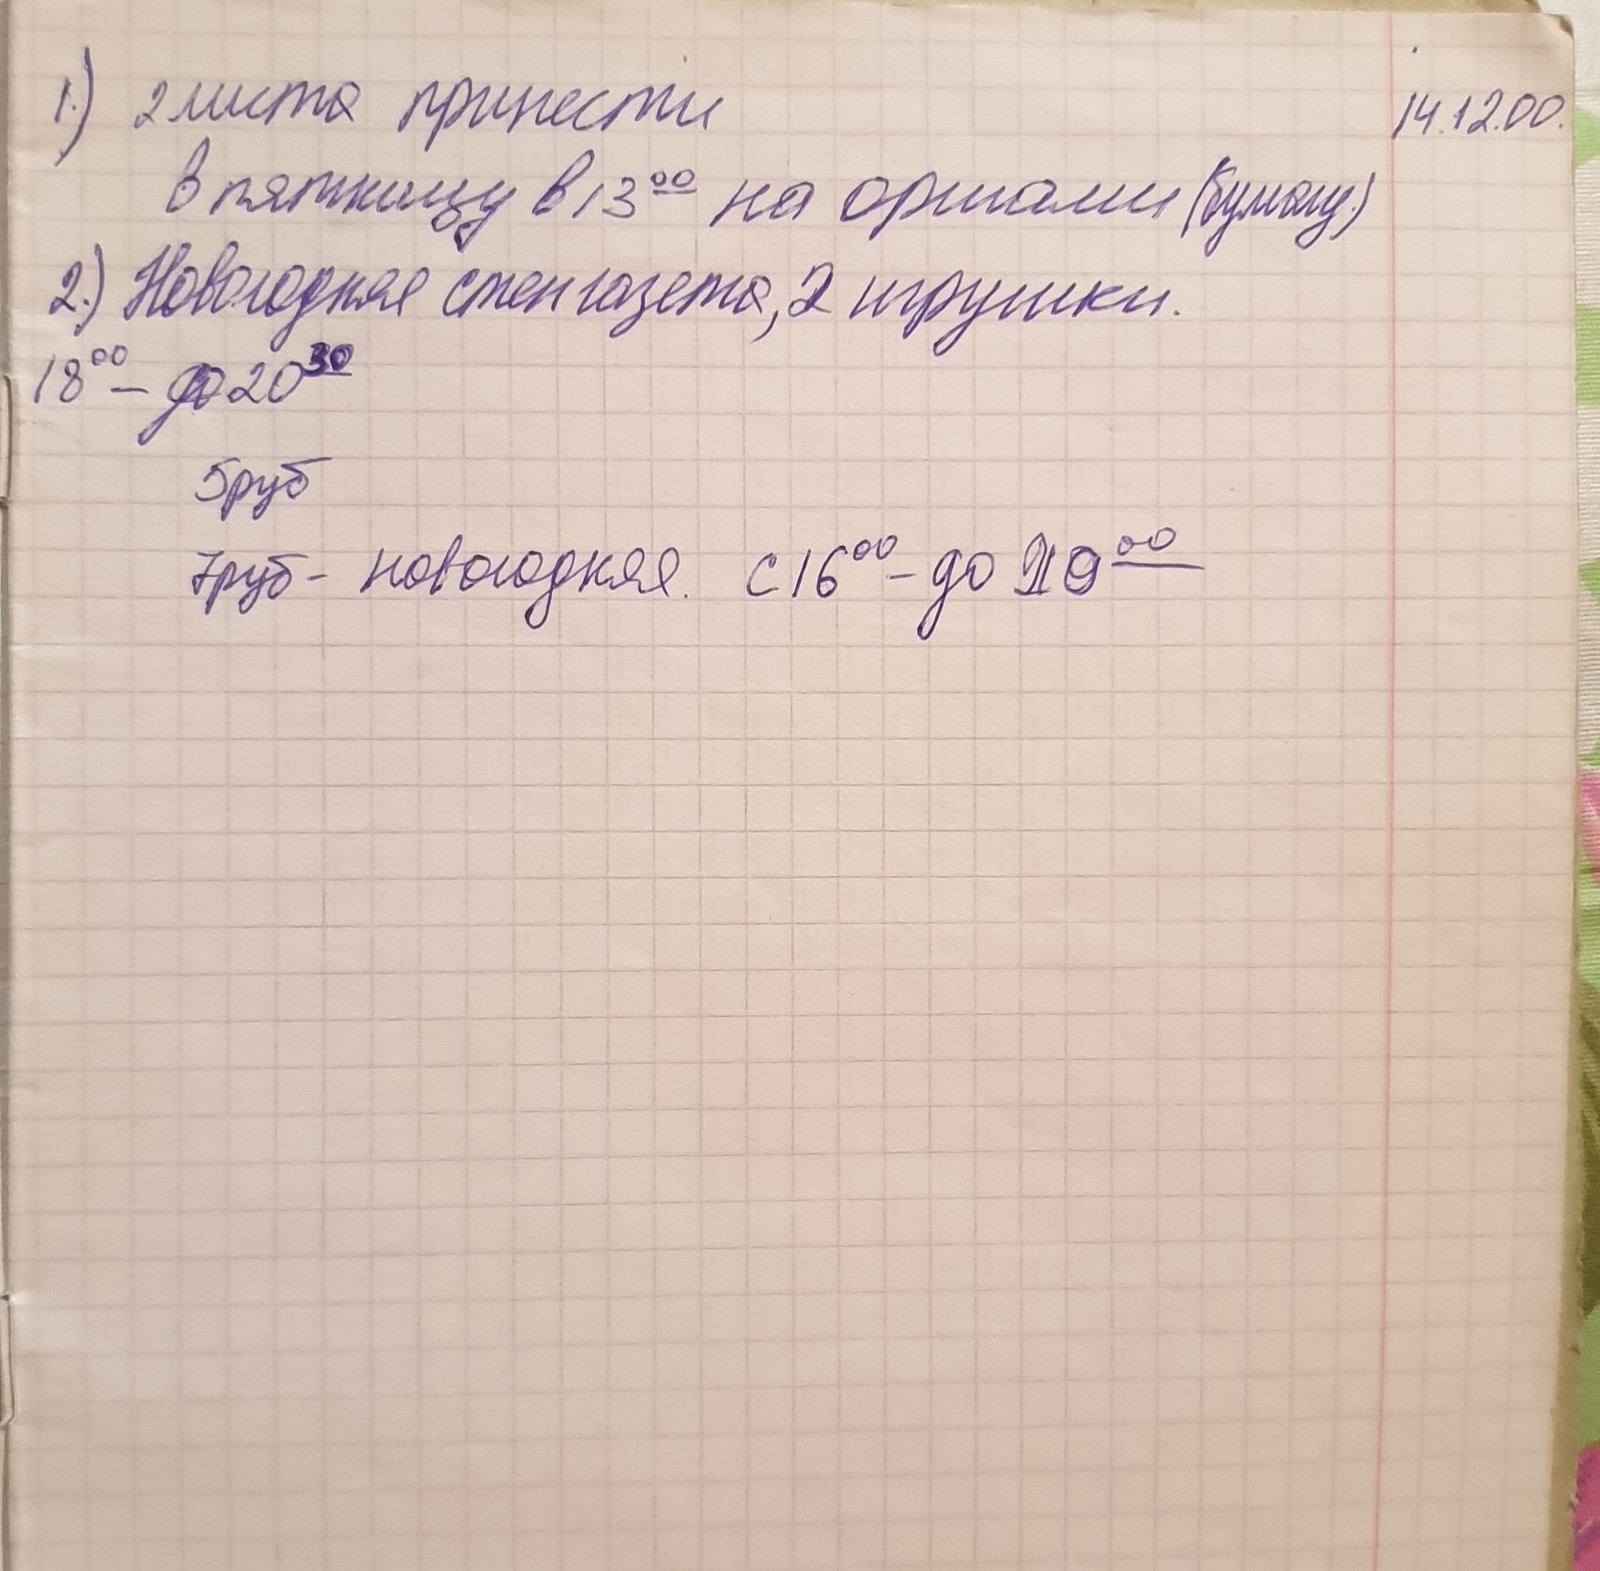 1.) 2 листа принести
14.12.00.
в пятницу в 13 00 на оригами (бумагу.)
2.) Новогодняя стенгазета, 2 игрушки.
18 00 - до 20 30
5 руб
7 руб - новогодняя. с 16 00 - до 19 00